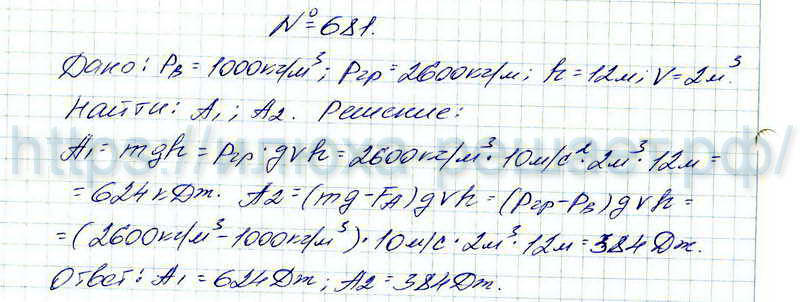 № 681.
Дано: ρв = 1000кг/м³; ρгр = 2600кг/м; h = 12м; V = 2м³.
Найти: A₁; A₂. Решение:
A₁ = mgh = ρгр·gVh = 2600кг/м³·10м/с²·2м³·12м =
= 624кДж. A₂ = (mg-FA)gVh = (ρгр-ρв)gVh =
= (2600кг/м³-1000кг/м³)·10м/с·2м³·12м = 384Дж.
Ответ: A₁ = 624Дж; A₂ = 384Дж.